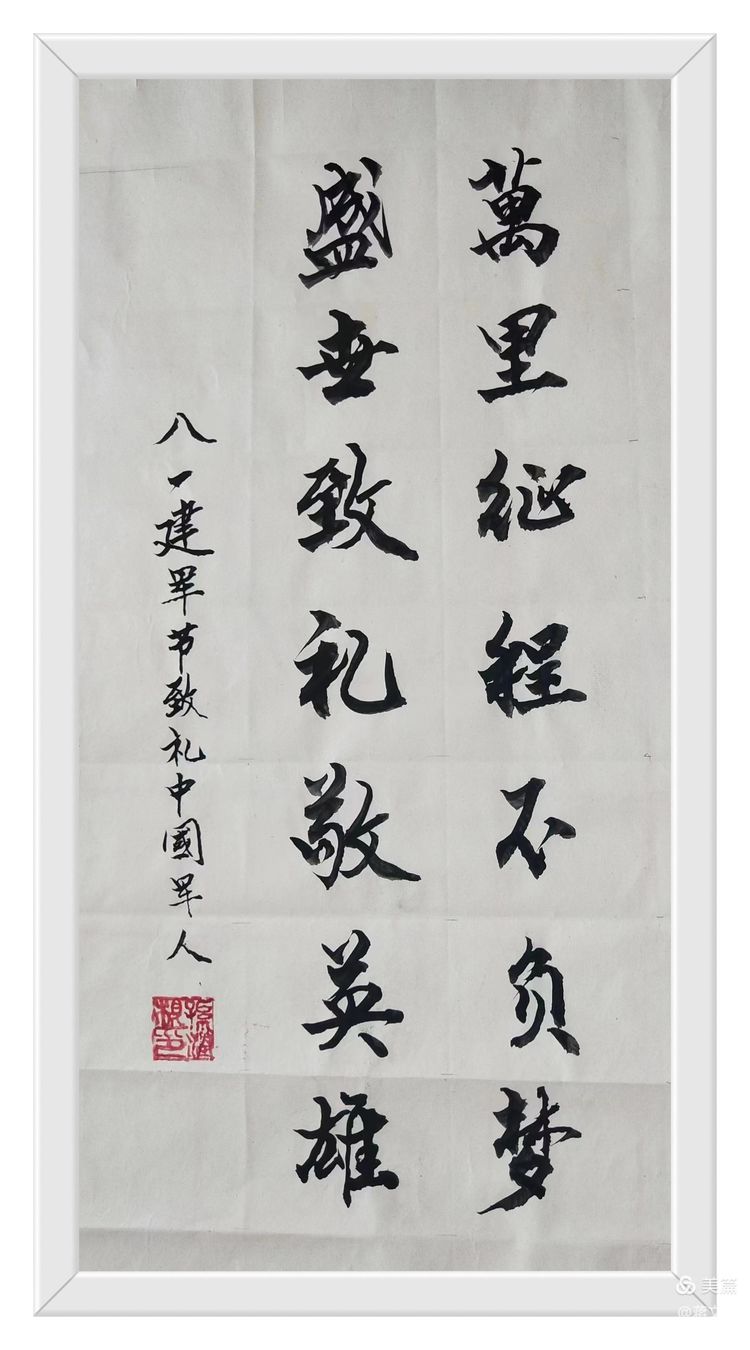 萬里征程不负梦
盛世致礼敬英雄
八一建军节致礼中國军人
美篇